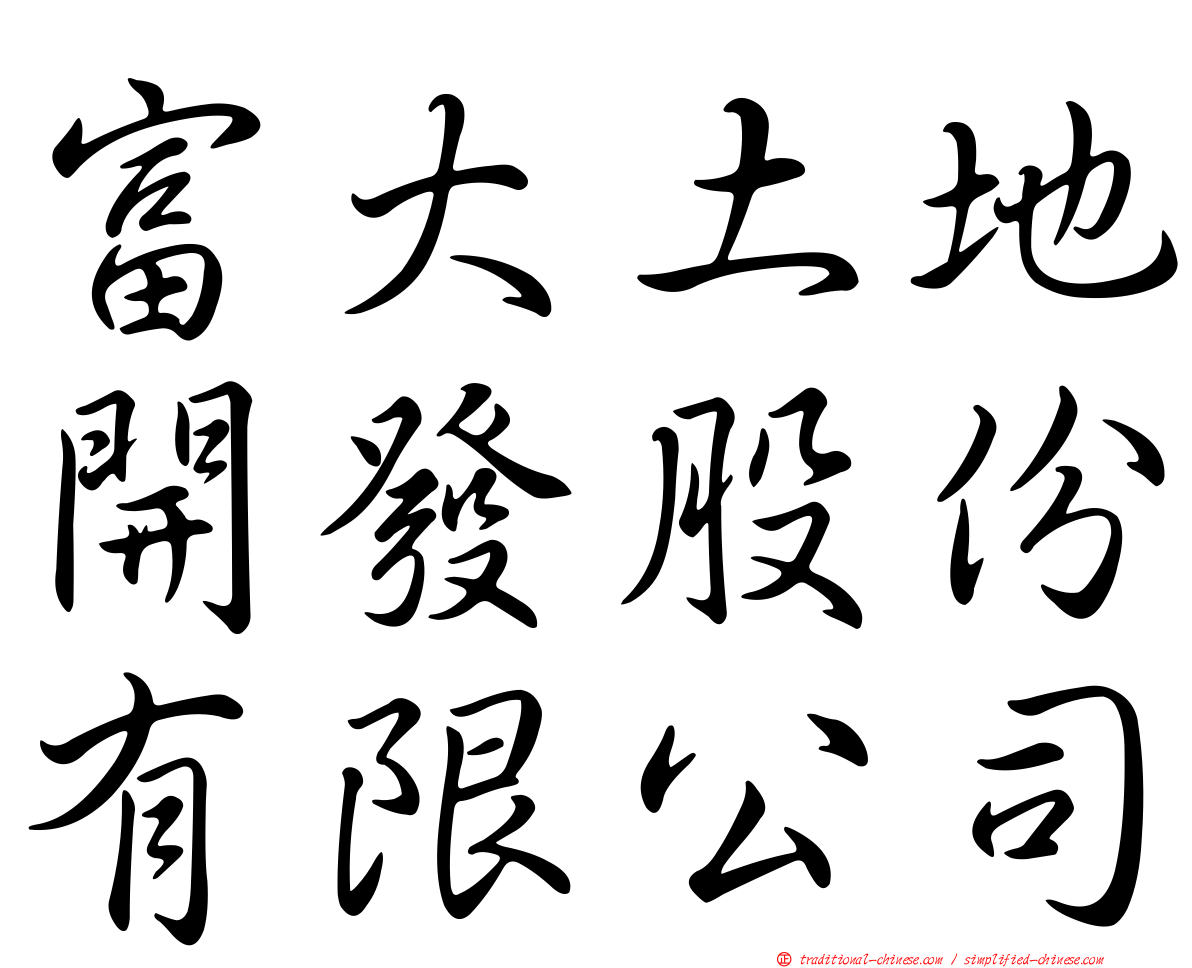 富大土地
開發股份
有限公司
正 traditional-chinese.com / simplified-chinese.com